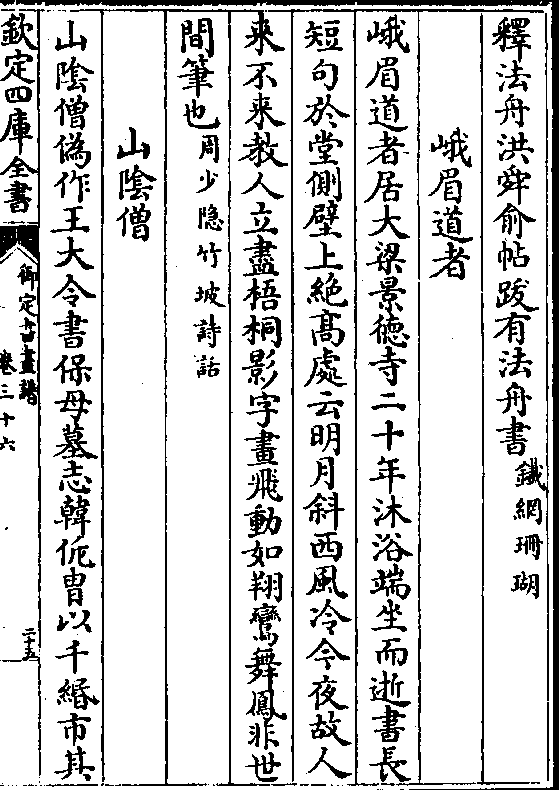 釋法舟洪舜俞帖跋有法舟書鐵網珊瑚
峨眉道者
峨眉道者居大梁景德寺二十年沐浴端坐而逝書長
短句於堂側壁上絶髙處云明月斜西風冷今夜故人
來不來教人立盡梧桐影字畫飛動如翔鸞舞鳳非世
間筆也周少隐竹坡詩話
山陰僧
山陰僧偽作王大令書保母墓志韓侂胄以千緡市其
欽定四庫全書
御定書畫譜
卷三十六
二十五